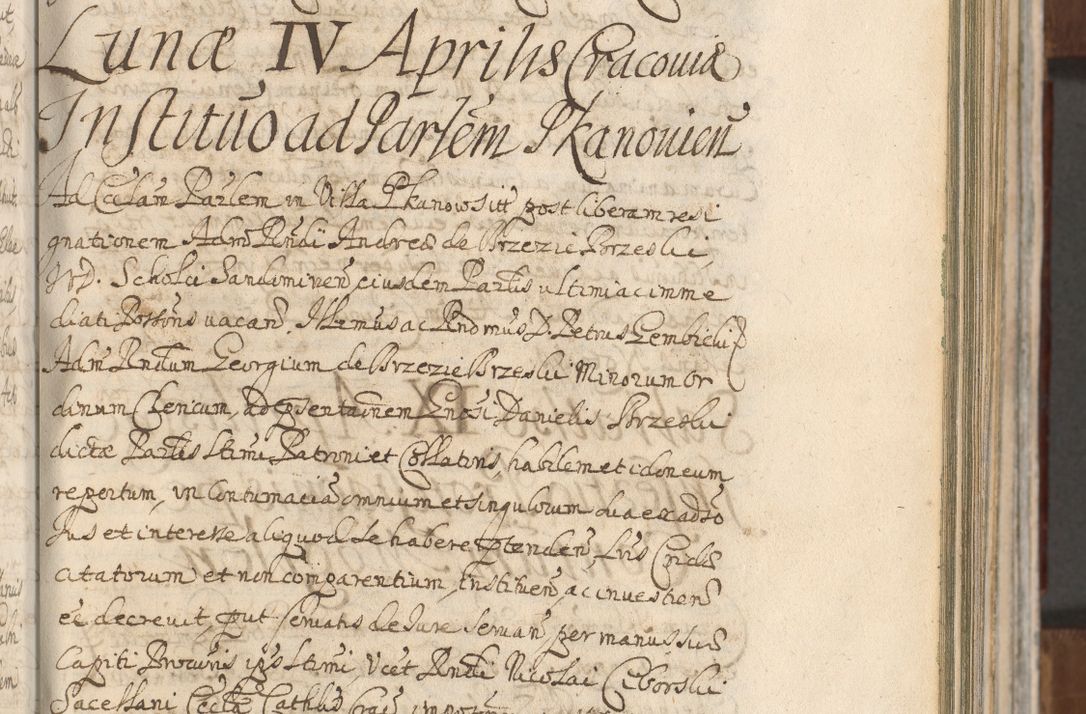 Lunæ IV Aprilis Cracouiæ
Institutio ad Parlem Pkanouien
Ad Eccłam Parlem in Villa Pkanow sitt post liberam resi
gnationem Admi Rndi Andreæ de Brzezie Brzeski,
Scholci Sandomirien eiusdem Parlis ultimi ac imme
diati Possoris vacan, Illrmus ac Rndmus D. Petrus Gembicki
Adm Rndum Georgium de Brzezie Brzeski Minorum or
dinum Clericum, ad psentaonem Gnosi Danielis Brzeski
dictæ Parlis ltimi Patroni et Collatoris, habilem et idoneum
repertum, in Contumaciam omnium et singulorum sua ea adso
Jus et interesse aliquod se habere ptenden, Lris Cridæ
citatorum et non comparentium, Instituen, ac inuestien
ee decreuit, put seruatis de Jure seruan per manus suas
Capiti Procuris ipius ltimi, Vcet Rndi Nicolai Ciborski
Sacellani Ecclæ Cathlis Crac